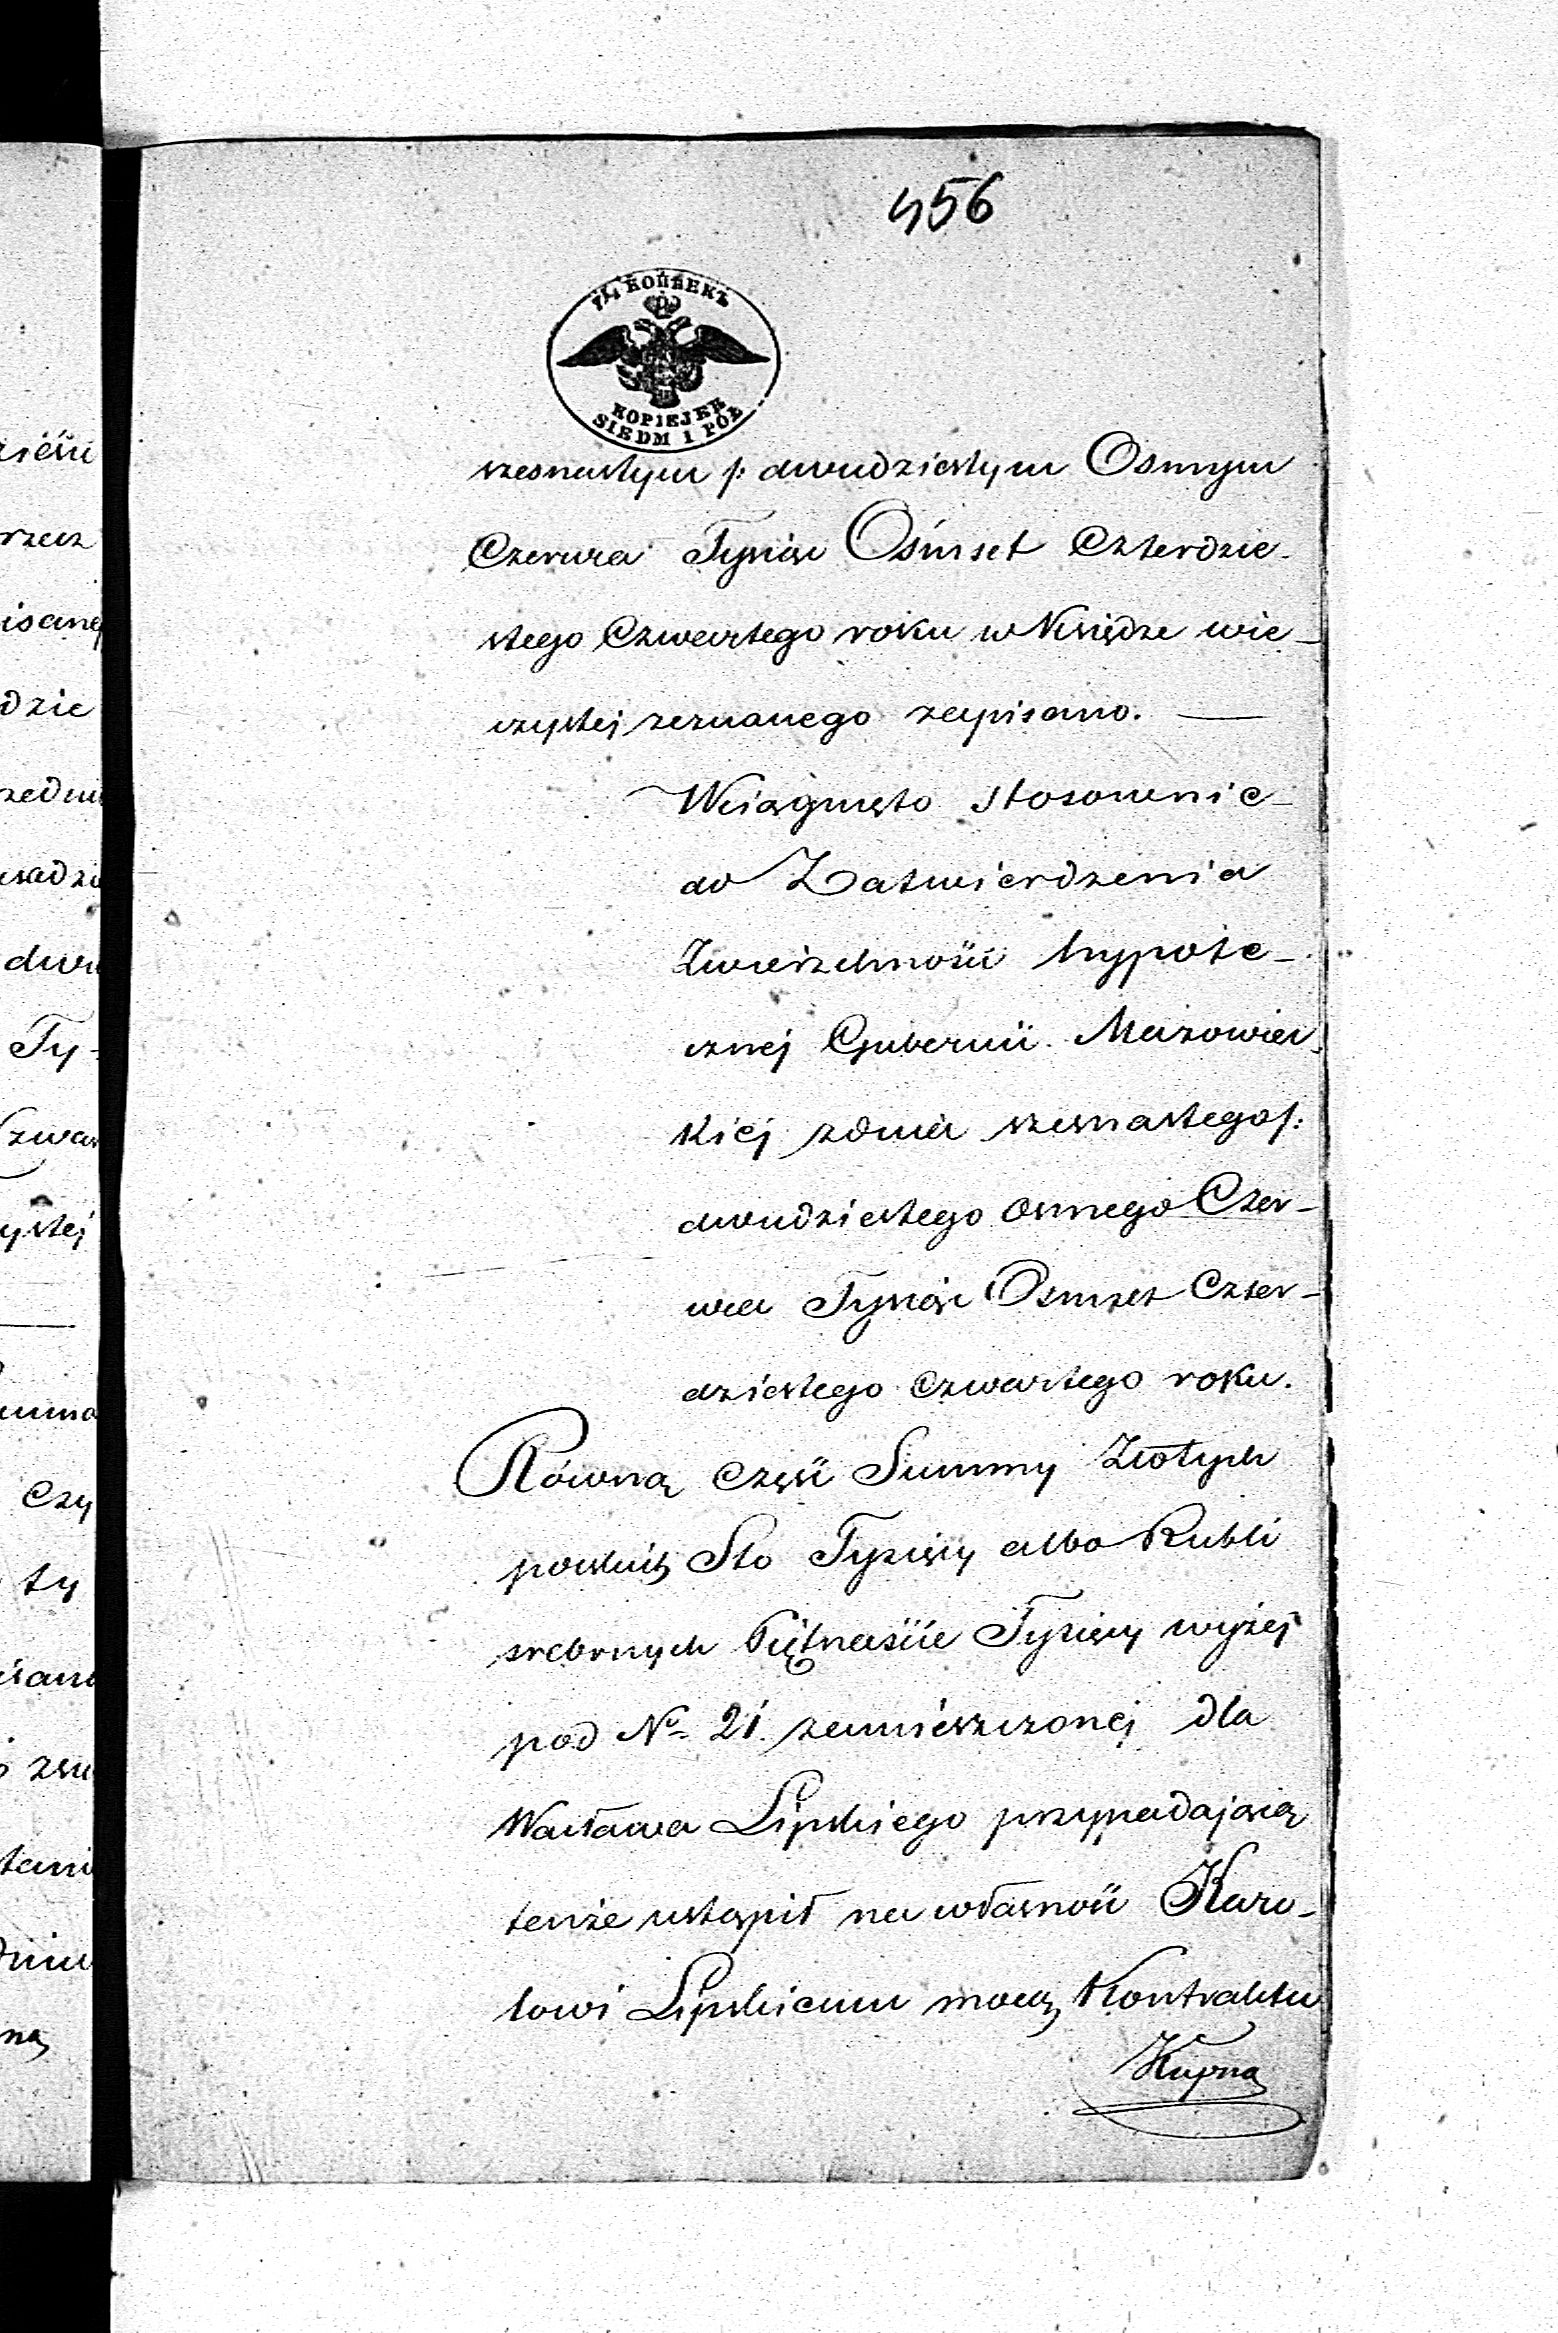 456
7½ КОПѢЕКЪ
KOPIEJEK
SIEDM I PÓŁ
szesnastym /: dwudziestym Osmym
Czerwca Tysiąc Ośmset Czterdzie-
stego Czwartego roku w Księdze wie-
czystej zeznanego zapisano. —
Wciągnięto stosownie
do Zatwierdzenia
Zwierzchności hypote-
cznej Gubernii Mazowiec-
kiej z dnia szesnastego /:
dwudziestego osmego Czer-
wca Tysiąc Osmset Czter-
dziestego czwartego roku.
Równą część Summy Złotych
polskich Sto Tysięcy albo Rubli
srebrnych Piętnaście Tysięcy wyżej
pod No 21. zamieszczonej dla
Wacława Lipskiego przypadającą
tenże ustąpił na własność Karo-
lowi Lipskiemu mocą Kontraktu
Kupna